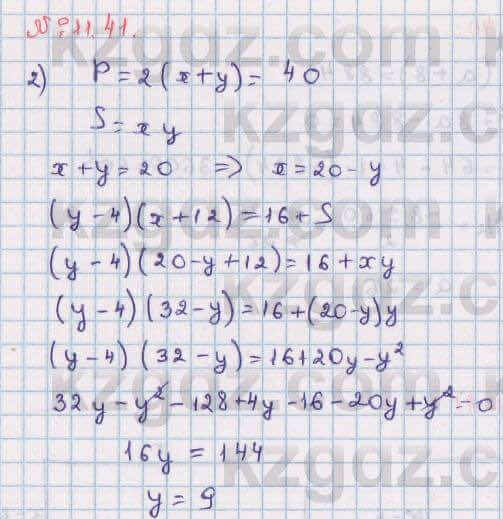 № 11.41.
2) P = 2(x+y) = 40
S = xy
x + y = 20 => x = 20 - y
(y - 4)(x + 12) = 16 + S
(y - 4)(20 - y + 12) = 16 + xy
(y - 4)(32 - y) = 16 + (20 - y)y
(y - 4)(32 - y) = 16 + 20y - y²
32y - y² - 128 + 4y - 16 - 20y + y² = 0
16y = 144
y = 9